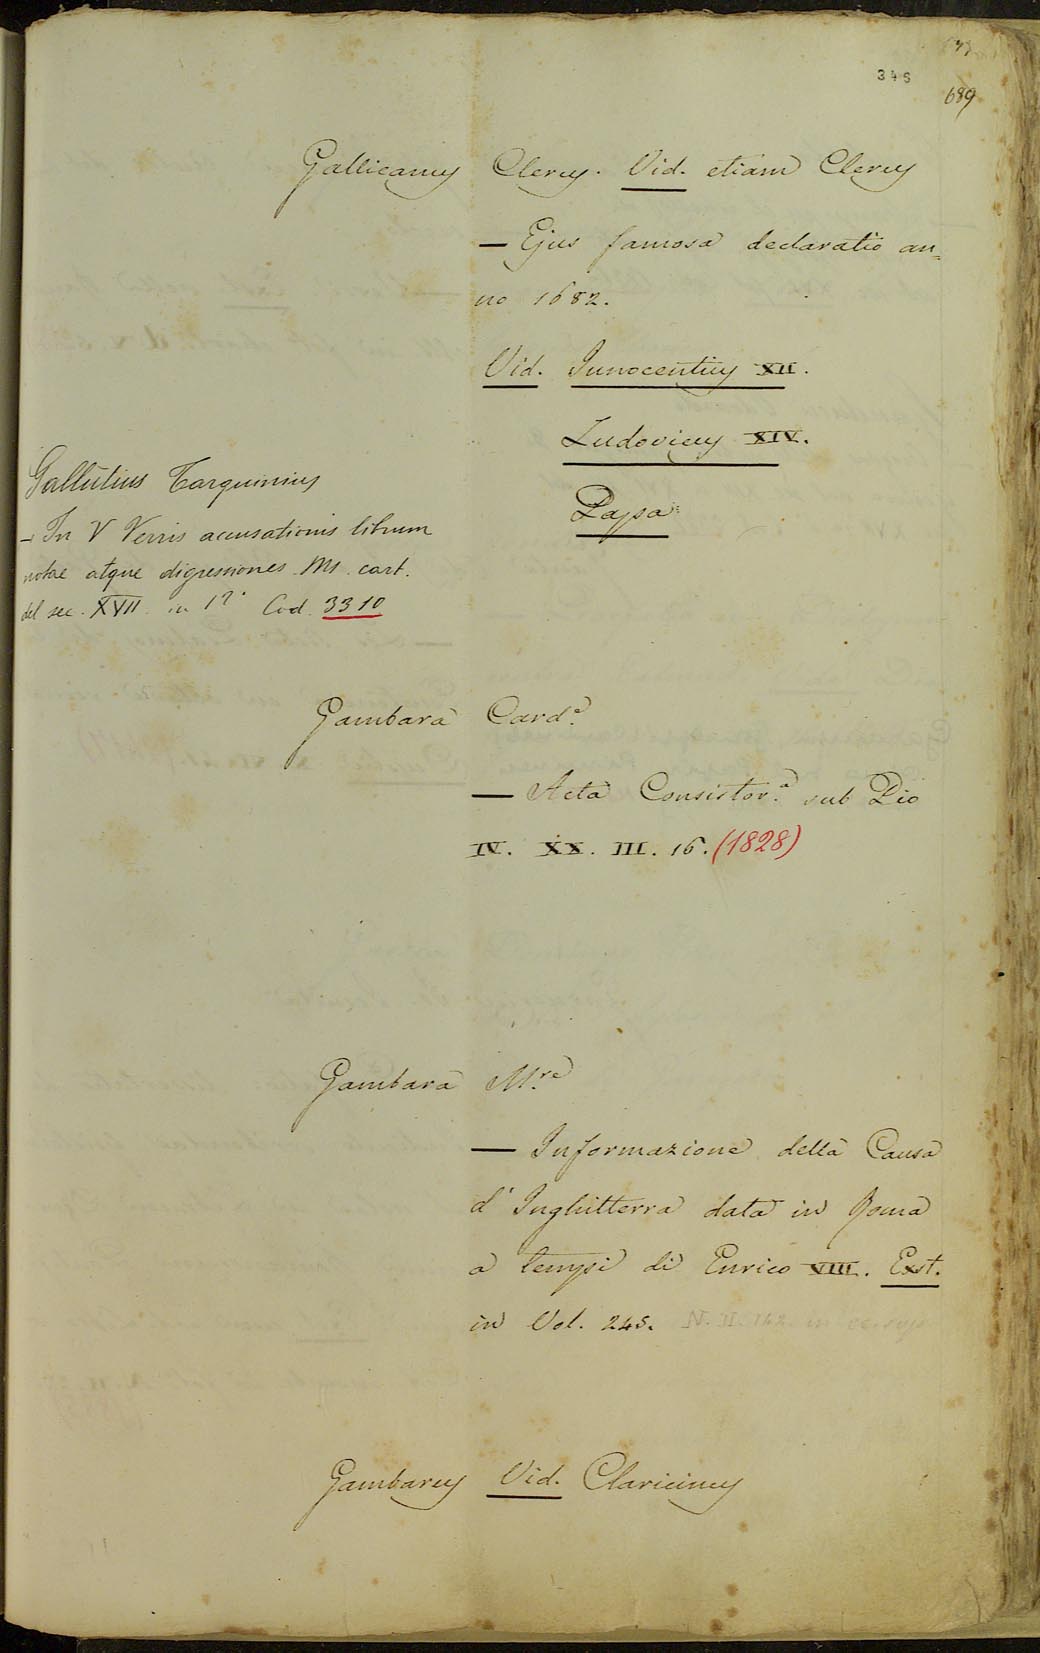 345
689
Gallicanus Clerus. Vid. etiam Clerus
— Ejus famosa declaratio an=
no 1682.
Vid. Innocentius XII.
Ludovicus XIV.
Papa
Gallutius Tarquinius
— In V Verris accusationis librum
notae atque digressiones Ms. cart.
del sec. XVII. in 12° Cod. 3310
Gambara Card.e
— Acta Consistor.a sub Pio
IV. XX. III. 16. (1828)
Gambara M.re
— Informazione della Causa
d' Inghilterra data in Roma
a tempi di Enrico VIII. Ext.
in Vol. 245. N. II. 142.
Gambarus Vid. Claricinus